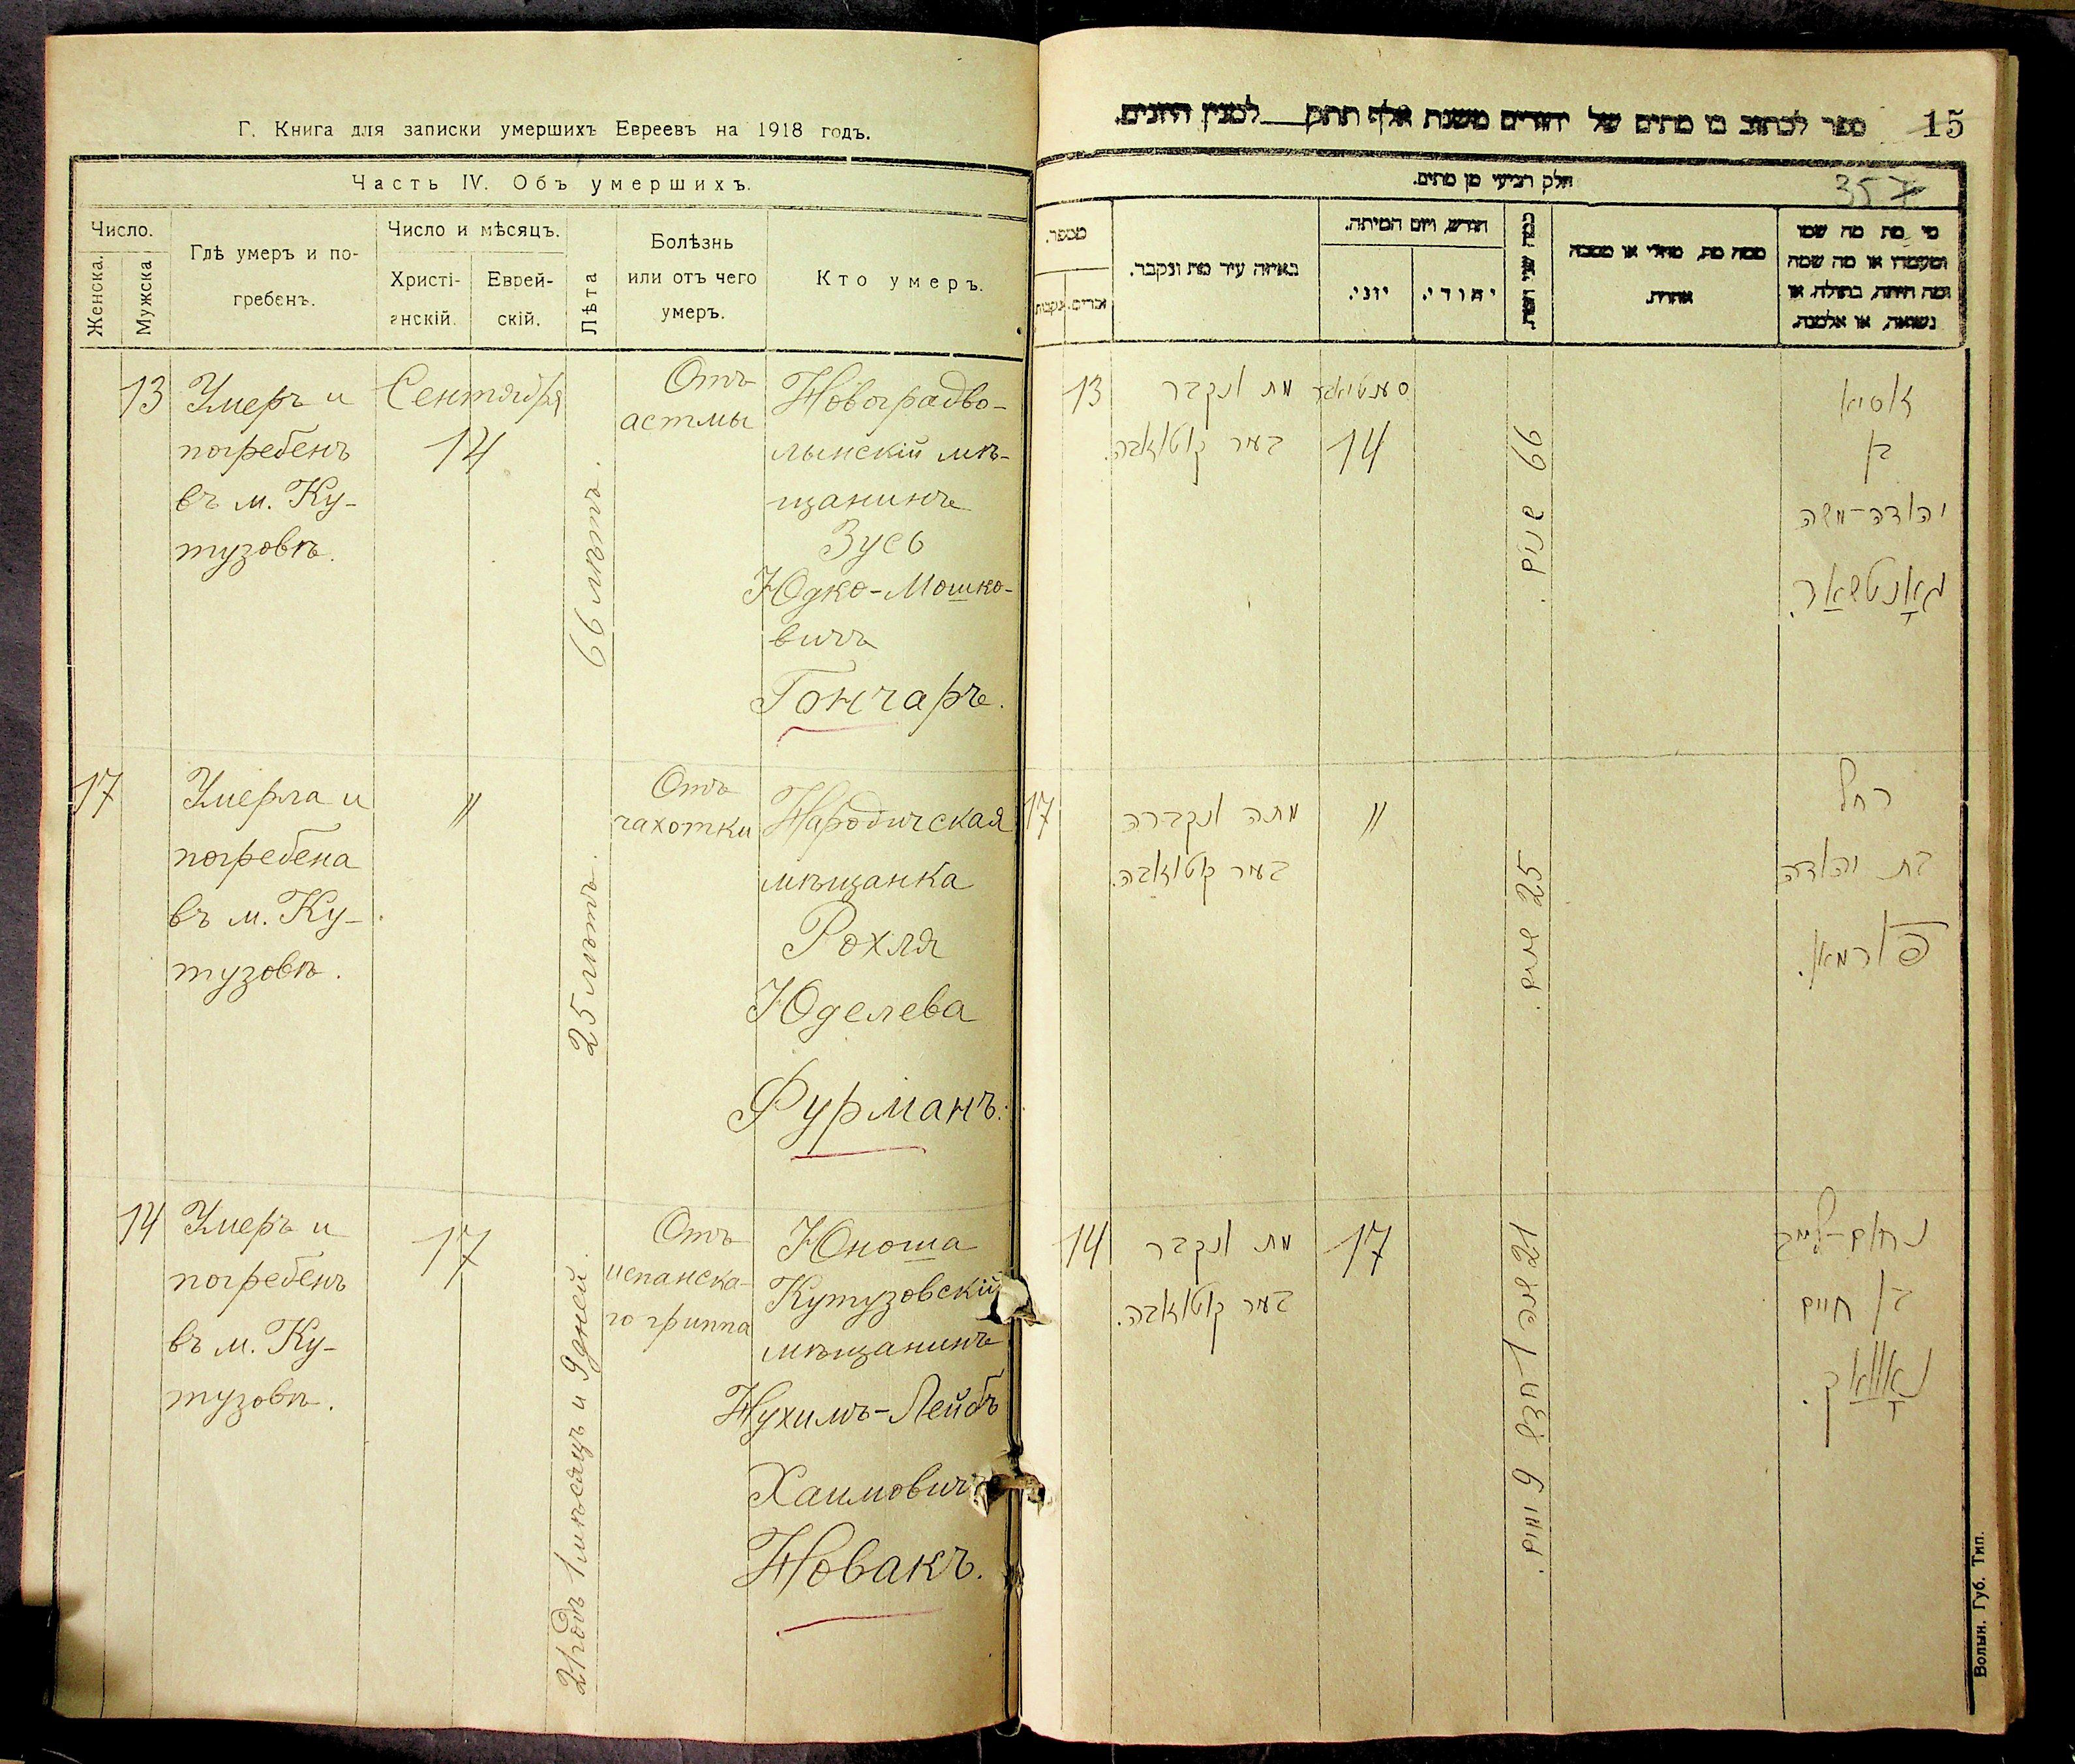 Г. Книга для записки умершихъ Евреевъ на 1918 годъ.
Часть IV. Объ умершихъ.
Число.
Женска.
Мужска
Гдѣ умеръ и по-
гребенъ.
Число и мѣсяцъ.
Христі-
анскій.
Еврей-
скій.
Лѣта
Болѣзнь
или отъ чего
умеръ.
Кто умеръ.
13
Умеръ и
погребенъ
въ м. Ку-
тузовѣ.
Сентября
14
66 лѣтъ.
Отъ
астмы
Новоградво-
лынскій мѣ-
щанинъ
Зусь
Юдко-Мошко-
вичъ
Гончаръ.
17
Умерла и
погребена
въ м. Ку-
тузовѣ.
"
25 лѣтъ.
Отъ
чахотки
Народичская
мѣщанка
Рохля
Юделева
Фурманъ.
14
Умеръ и
погребенъ
въ м. Ку-
тузовѣ.
17
21 годъ 1 мѣсяцъ и 9 дней.
Отъ
испанска-
го гриппа
Юноша
Кутузовскій
мѣщанинъ
Нухимъ-Лейбъ
Хаимовичъ
Новакъ.
15
ספר לכתוב בו מתים של יהודים משנת אלף תתק___למנין היונים.
357
חלק רביעי מן מתים.
מספר.
זכרים.
נקבות
באיזה עיר מת ונקבר.
חודש, ויום המיתה.
יוני.
יהודי.
כמה שני המת.
ממה מת, מחלי או מסבה
אחרת.
מי מת מה שמו
ומעמדו או מה שמה
ומה היתה, בתולה, או
נשואה, או אלמנה.
13
מת ונקבר
בעיר קוטוזאבה.
14
66 שנים.
זוסיא
בן
יהודה-משה
גאָנטשאַר.
17
מתה ונקברה
בעיר קוטוזאבה.
"
25 שנים.
רחל
בת יהודה
פורמאן.
14
מת ונקבר
בעיר קוטוזאבה.
17
21 שנה 1 חדש 9 ימים.
נחום-לייב
בן חיים
נאָוואַק.
Волын. Губ. Тип.